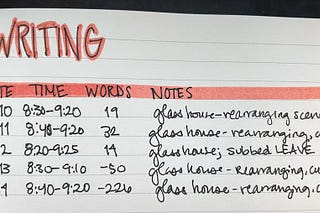 WRITING
TE TIME WORDS NOTES
10 8:30-9:20 19 glasshouse-rearranging scene
11 8:48-9:20 32 glasshouse-rearranging, cu
2 8:20-9:25 14 glasshouse; subbed LEAVE
13 8:30-9:10 -50 glass house - rearranging, cu
4 8:40-9:20 -226 glass house-rearranging, c